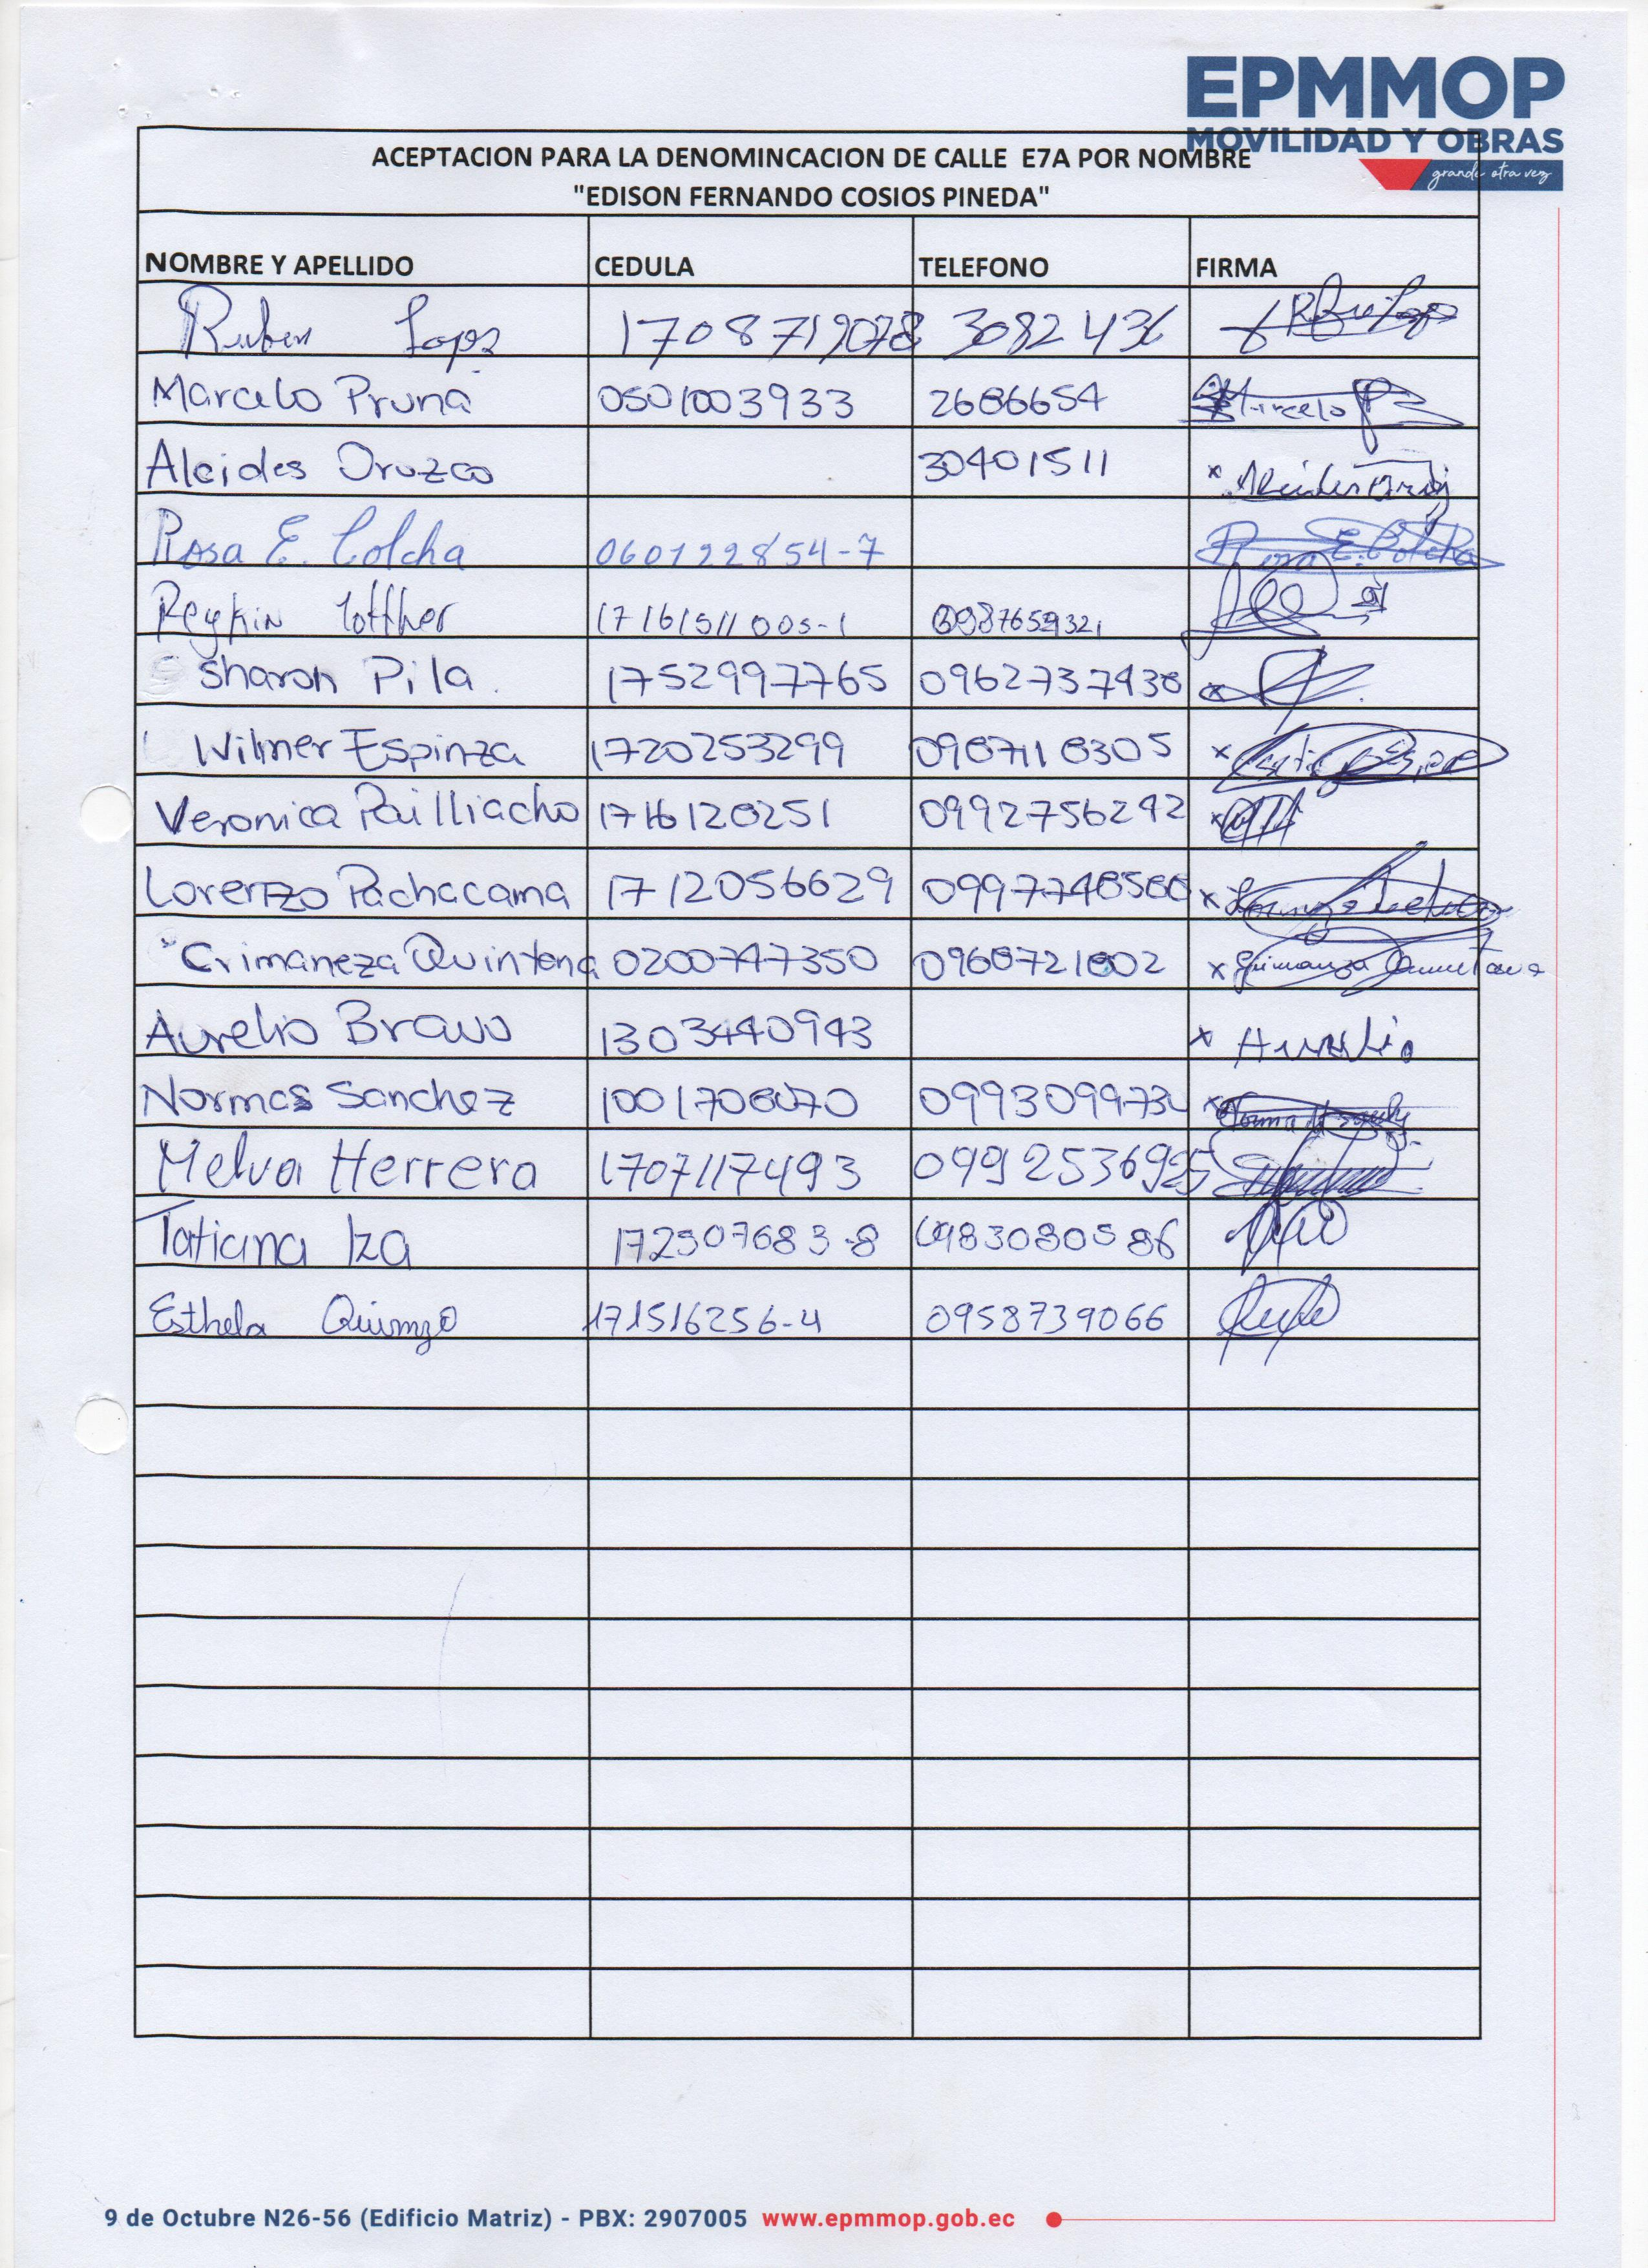 EPMMOP
MOVILIDAD Y OBRAS
grande otra vez
ACEPTACION PARA LA DENOMINCACION DE CALLE E7A POR NOMBRE
"EDISON FERNANDO COSIOS PINEDA"
NOMBRE Y APELLIDO CEDULA TELEFONO FIRMA
Ruben Lopez 1708719078 3082436
Marcelo Pruna 0501003933 2686654 Marcelo P
Alcides Orozco 30401511
Rosa E. Colcha 060122854-7 Rosa E. Colcha
Reykin 171615511005-1
Sharon Pila. 1752997765 0962737438
Wilmer Espinza 1720253299 0987118305
Veronica Pailliacho 1716120251 0992756242
Lorenzo Pachacama 1712056629 0997748588
Crimaneza Quintana 0200747350 0968721802
Aurelio Bravo 1303440943 x Aurelio
Normas Sanchez 1001708070 099309973
Melva Herrera 1707117493 0992536925
Tatiana Iza 172507683-8 0983080586
Esthela 171516256-4 0958739066
9 de Octubre N26-56 (Edificio Matriz) - PBX: 2907005 www.epmmop.gob.ec